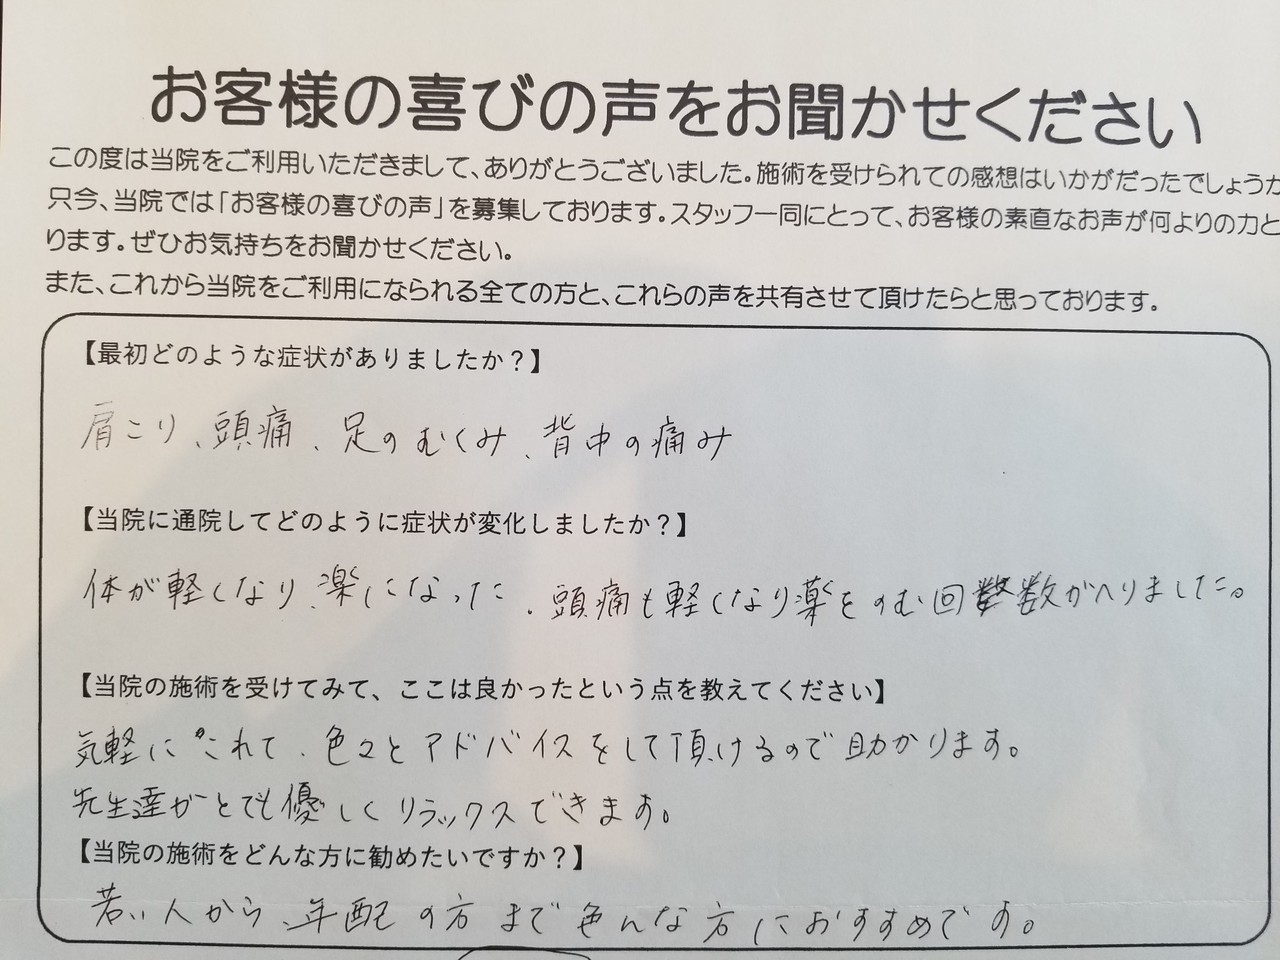 お客様の喜びの声をお聞かせください
この度は当院をご利用いただきまして、ありがとうございました。施術を受けられての感想はいかがだったでしょうか
只今、当院では「お客様の喜びの声」を募集しております。スタッフ一同にとって、お客様の素直なお声が何よりの力と
ります。ぜひお気持ちをお聞かせください。
また、これから当院をご利用になられる全ての方と、これらの声を共有させて頂けたらと思っております。
【最初どのような症状がありましたか？】
肩こり、頭痛、足のむくみ、背中の痛み
【当院に通院してどのように症状が変化しましたか？】
体が軽くなり、楽になった、頭痛も軽くなり薬をのむ回数がへりました。
【当院の施術を受けてみて、ここは良かったという点を教えてください】
気軽にこれて、色々とアドバイスをして頂けるので助かります。
先生達がとても優しくリラックスできます。
【当院の施術をどんな方に勧めたいですか？】
若い人から、年配の方まで色んな方におすすめです。